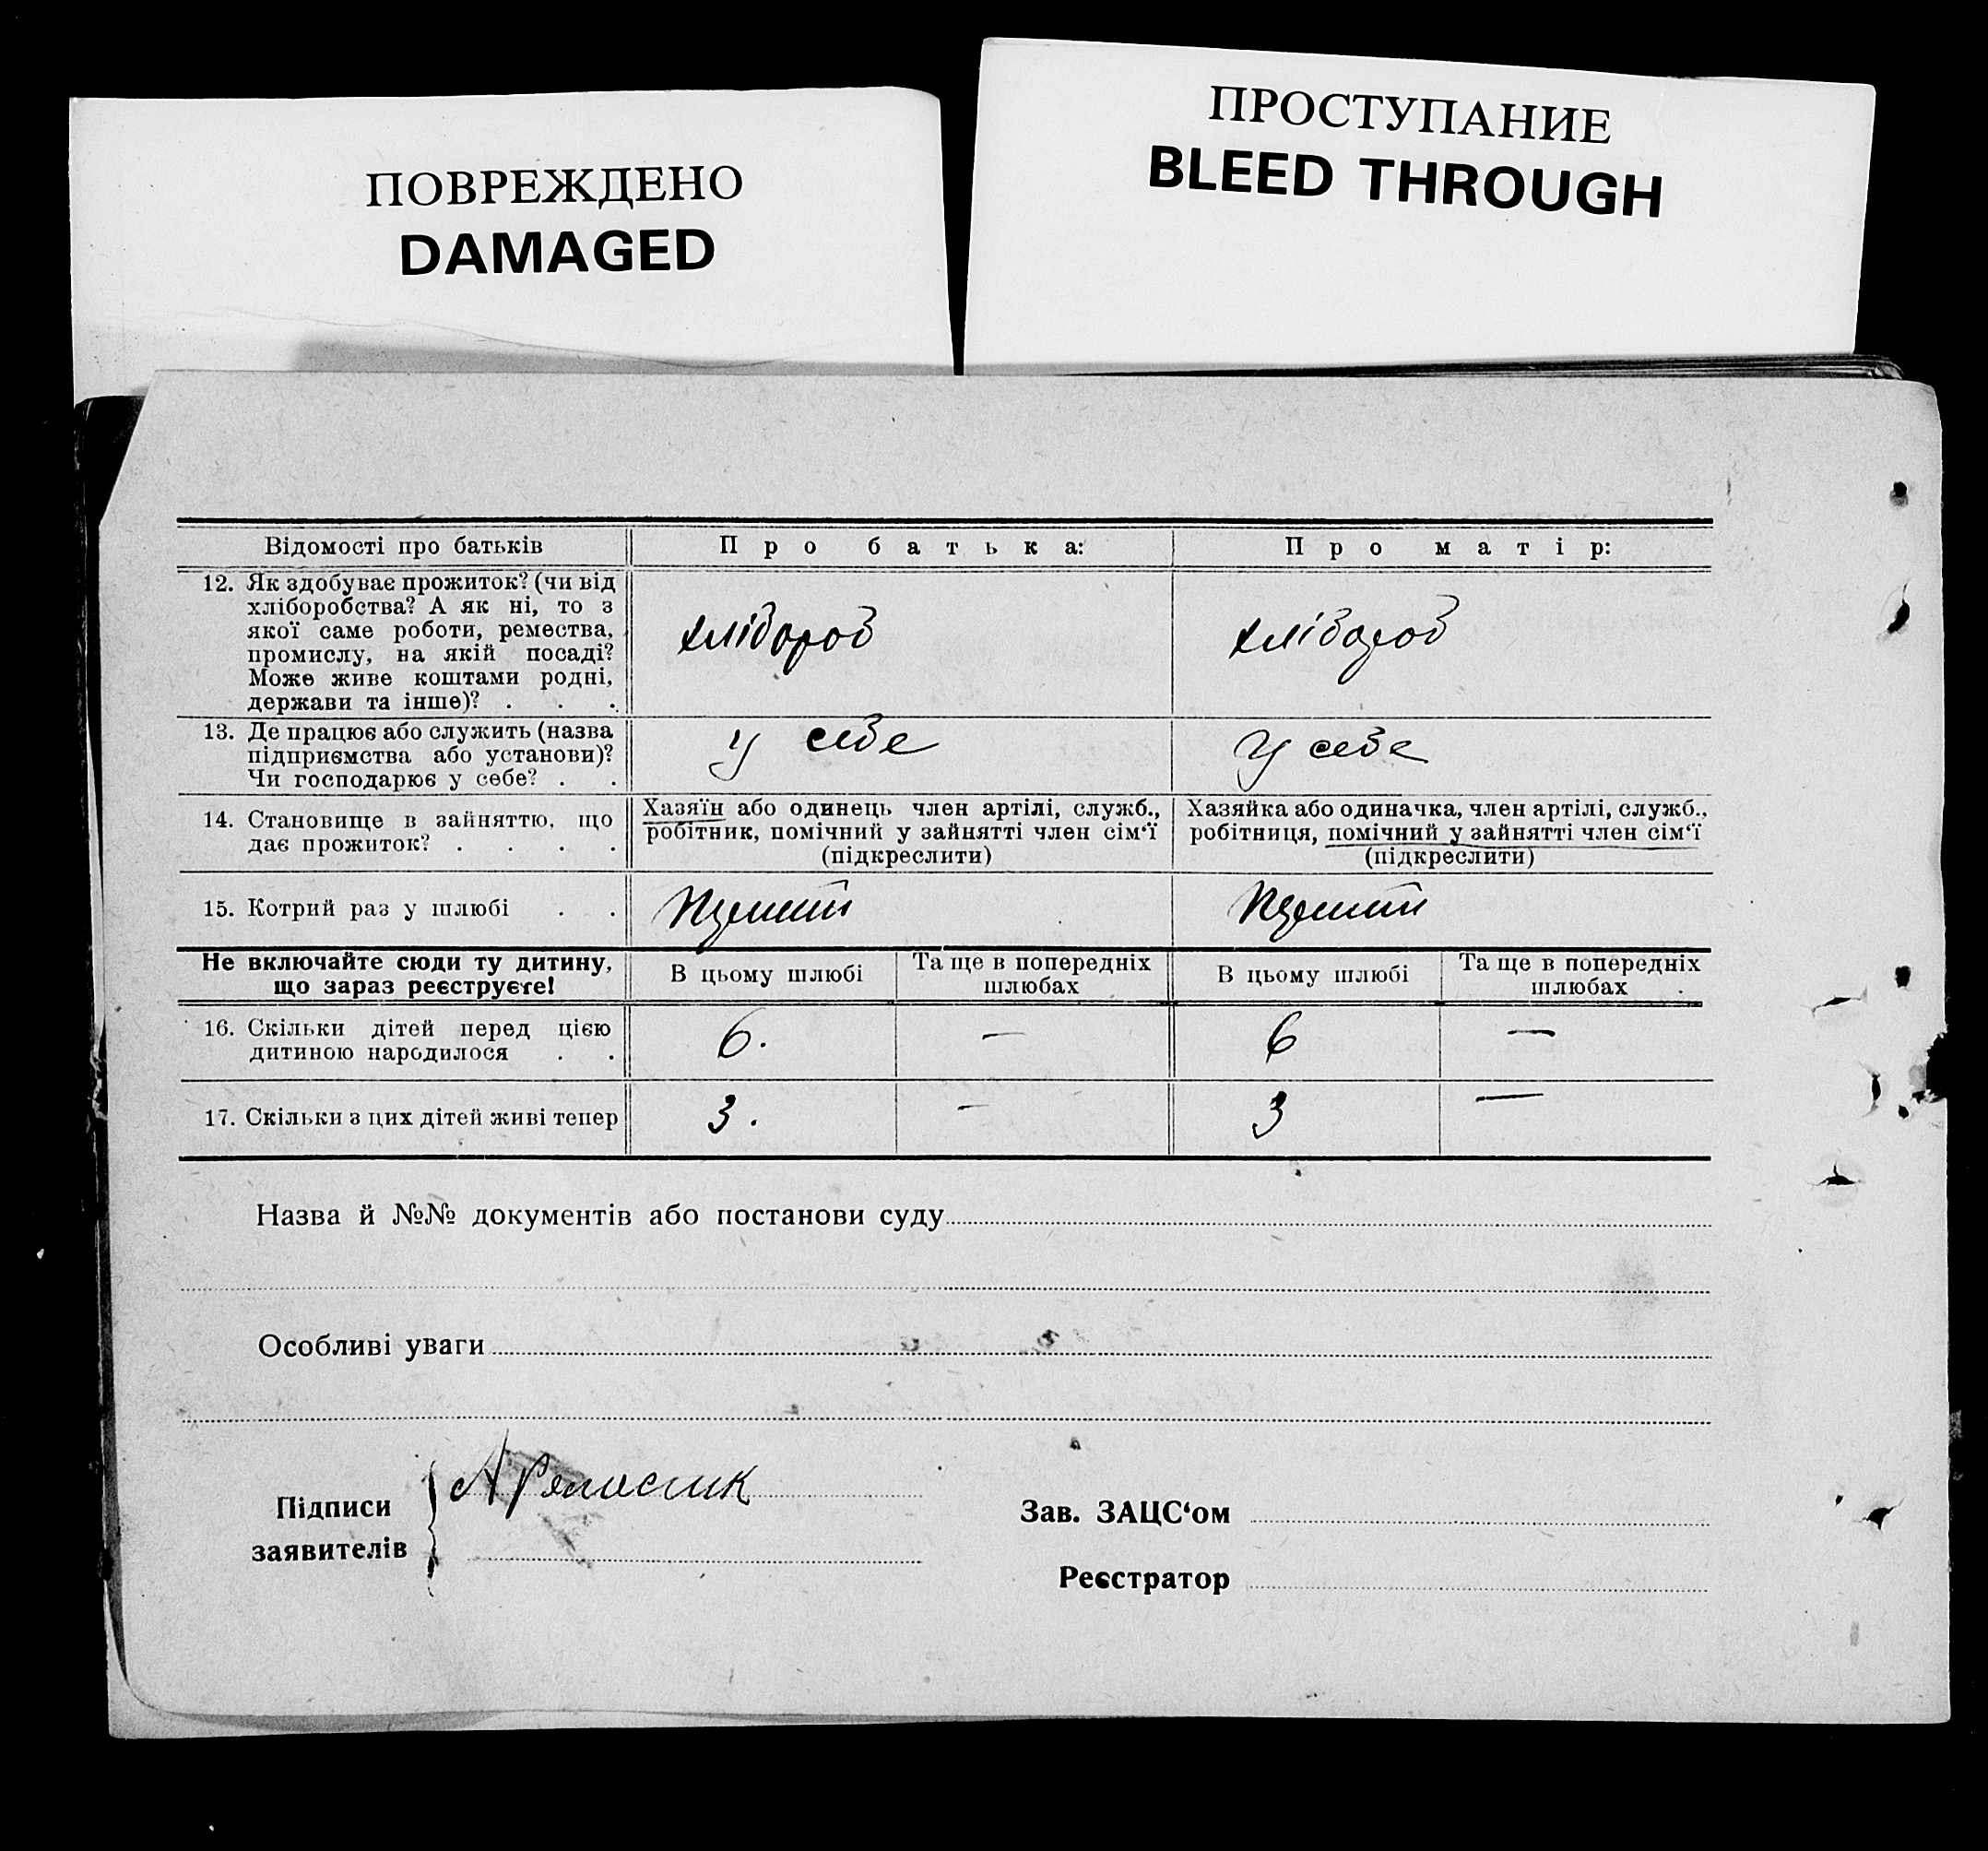 ПОВРЕЖДЕНО
DAMAGED
ПРОСТУПАНИЕ
BLEED THROUGH
Відомості про батьків
Про батька:
Про матір:
12. Як здобуває прожиток? (чи від
хліборобства? А як ні, то з
якої саме роботи, ремества,
промислу, на якій посаді?
Може живе коштами родні,
держави та інше)? . . .
хлібороб
хлібороб
13. Де працює або служить (назва
підприємства або установи)?
Чи господарює у себе? . .
у себе
у себе
14. Становище в зайняттю, що
дає прожиток? . . . .
Хазяїн або одинець член артілі, служб.,
робітник, помічний у зайнятті член сім‘ї
(підкреслити)
Хазяйка або одиначка, член артілі, служб.,
робітниця, помічний у зайнятті член сім‘ї
(підкреслити)
15. Котрий раз у шлюбі . .
Не включайте сюди ту дитину,
що зараз реєструєте!
В цьому шлюбі
Та ще в попередніх
шлюбах
В цьому шлюбі
Та ще в попередніх
шлюбах
16. Скільки дітей перед цією
дитиною народилося . .
6.
—
6
—
17. Скільки з цих дітей живі тепер
3.
—
3
—
Назва й №№ документів або постанови суду
Особливі уваги
Підписи
заявителів
Зав. ЗАЦС‘ом
Реєстратор